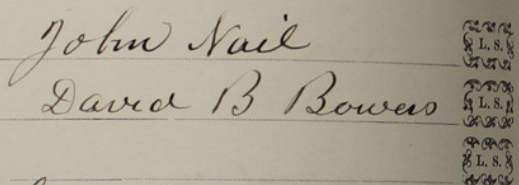 John Nail L. S.
David B Bowers L. S.
L. S.